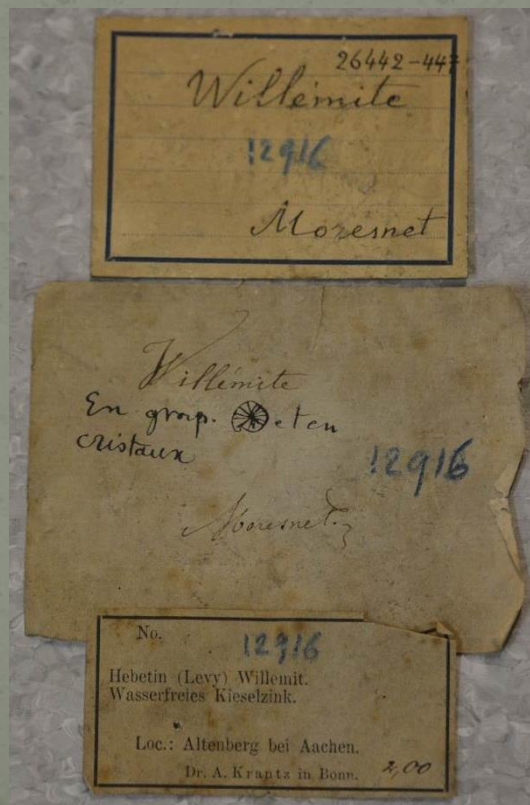 26442-447
Willémite
12916
Moresnet
Willémite
En group. et en
cristaux
12916
Moresnet.
No.
12916
Hebetin (Levy) Willemit.
Wasserfreies Kieselzink.
Loc.: Altenberg bei Aachen.
Dr. A. Krantz in Bonn.
2,00